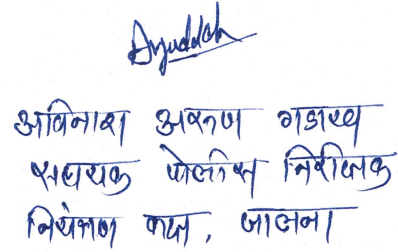 अविनाश अरुण गडाख
सहायक पोलीस निरीक्षक
नियंत्रण कक्ष, जालना